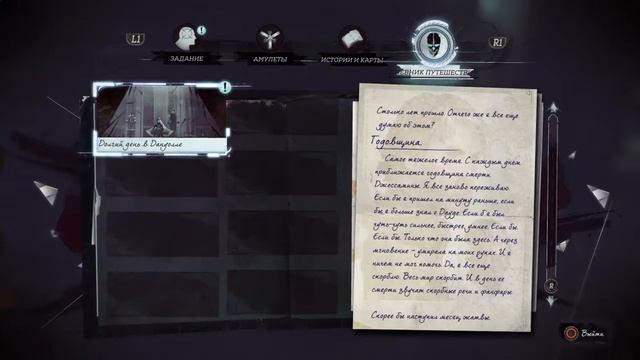 L1
ЗАДАНИЕ
АМУЛЕТЫ
ИСТОРИИ И КАРТЫ
ЕВНИК ПУТЕШЕСТВ
R1
!
!
Долгий день в Дануолле
Столько лет прошло. Отчего же я все еще
думаю об этом?
Годовщина
Самое тяжелое время. С каждым днем
приближается годовщина смерти
Джессамины. Я все заново переживаю.
Если бы я пришел на минуту раньше, если
бы я больше знал о Дауде. Если б я был
чуть-чуть сильнее, быстрее, умнее. Если бы.
Если бы. Только что она была здесь. А через
мгновение – умирала на моих руках. И я
ничем не мог помочь. Да, я все еще
скорблю. Весь мир скорбит. И в день ее
смерти звучат скорбные речи и фанфары.
Скорее бы наступил месяц жатвы.
R
Выйти